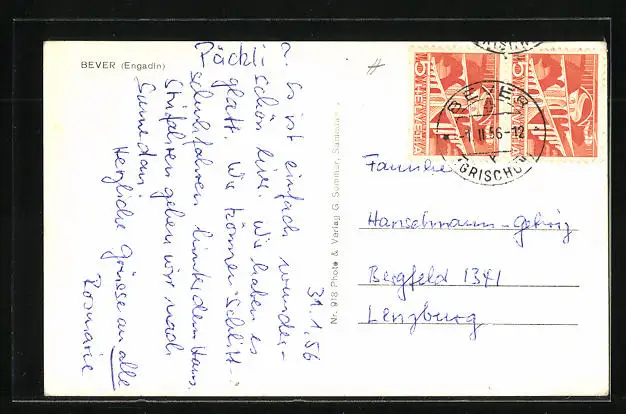 BEVER (Engadin)
31.1.56
Päckli
Es ist einfach wunder-
schön hier. Wir haben es
glatt. Wir können Schlitt-
schuhfahren hinter dem Haus.
Skifahren gehen wir nach
Samedan.
Herzliche Grüsse an alle
Rosmarie
Nr. 918 Photo & Verlag G. Sommer, Samedan
HELVETIA
HELVETIA
BEVER
-1.II.56-12
(GRISCHUN)
Familie
Hanschmann-Gehrig
Bergfeld 1341
Lenzburg